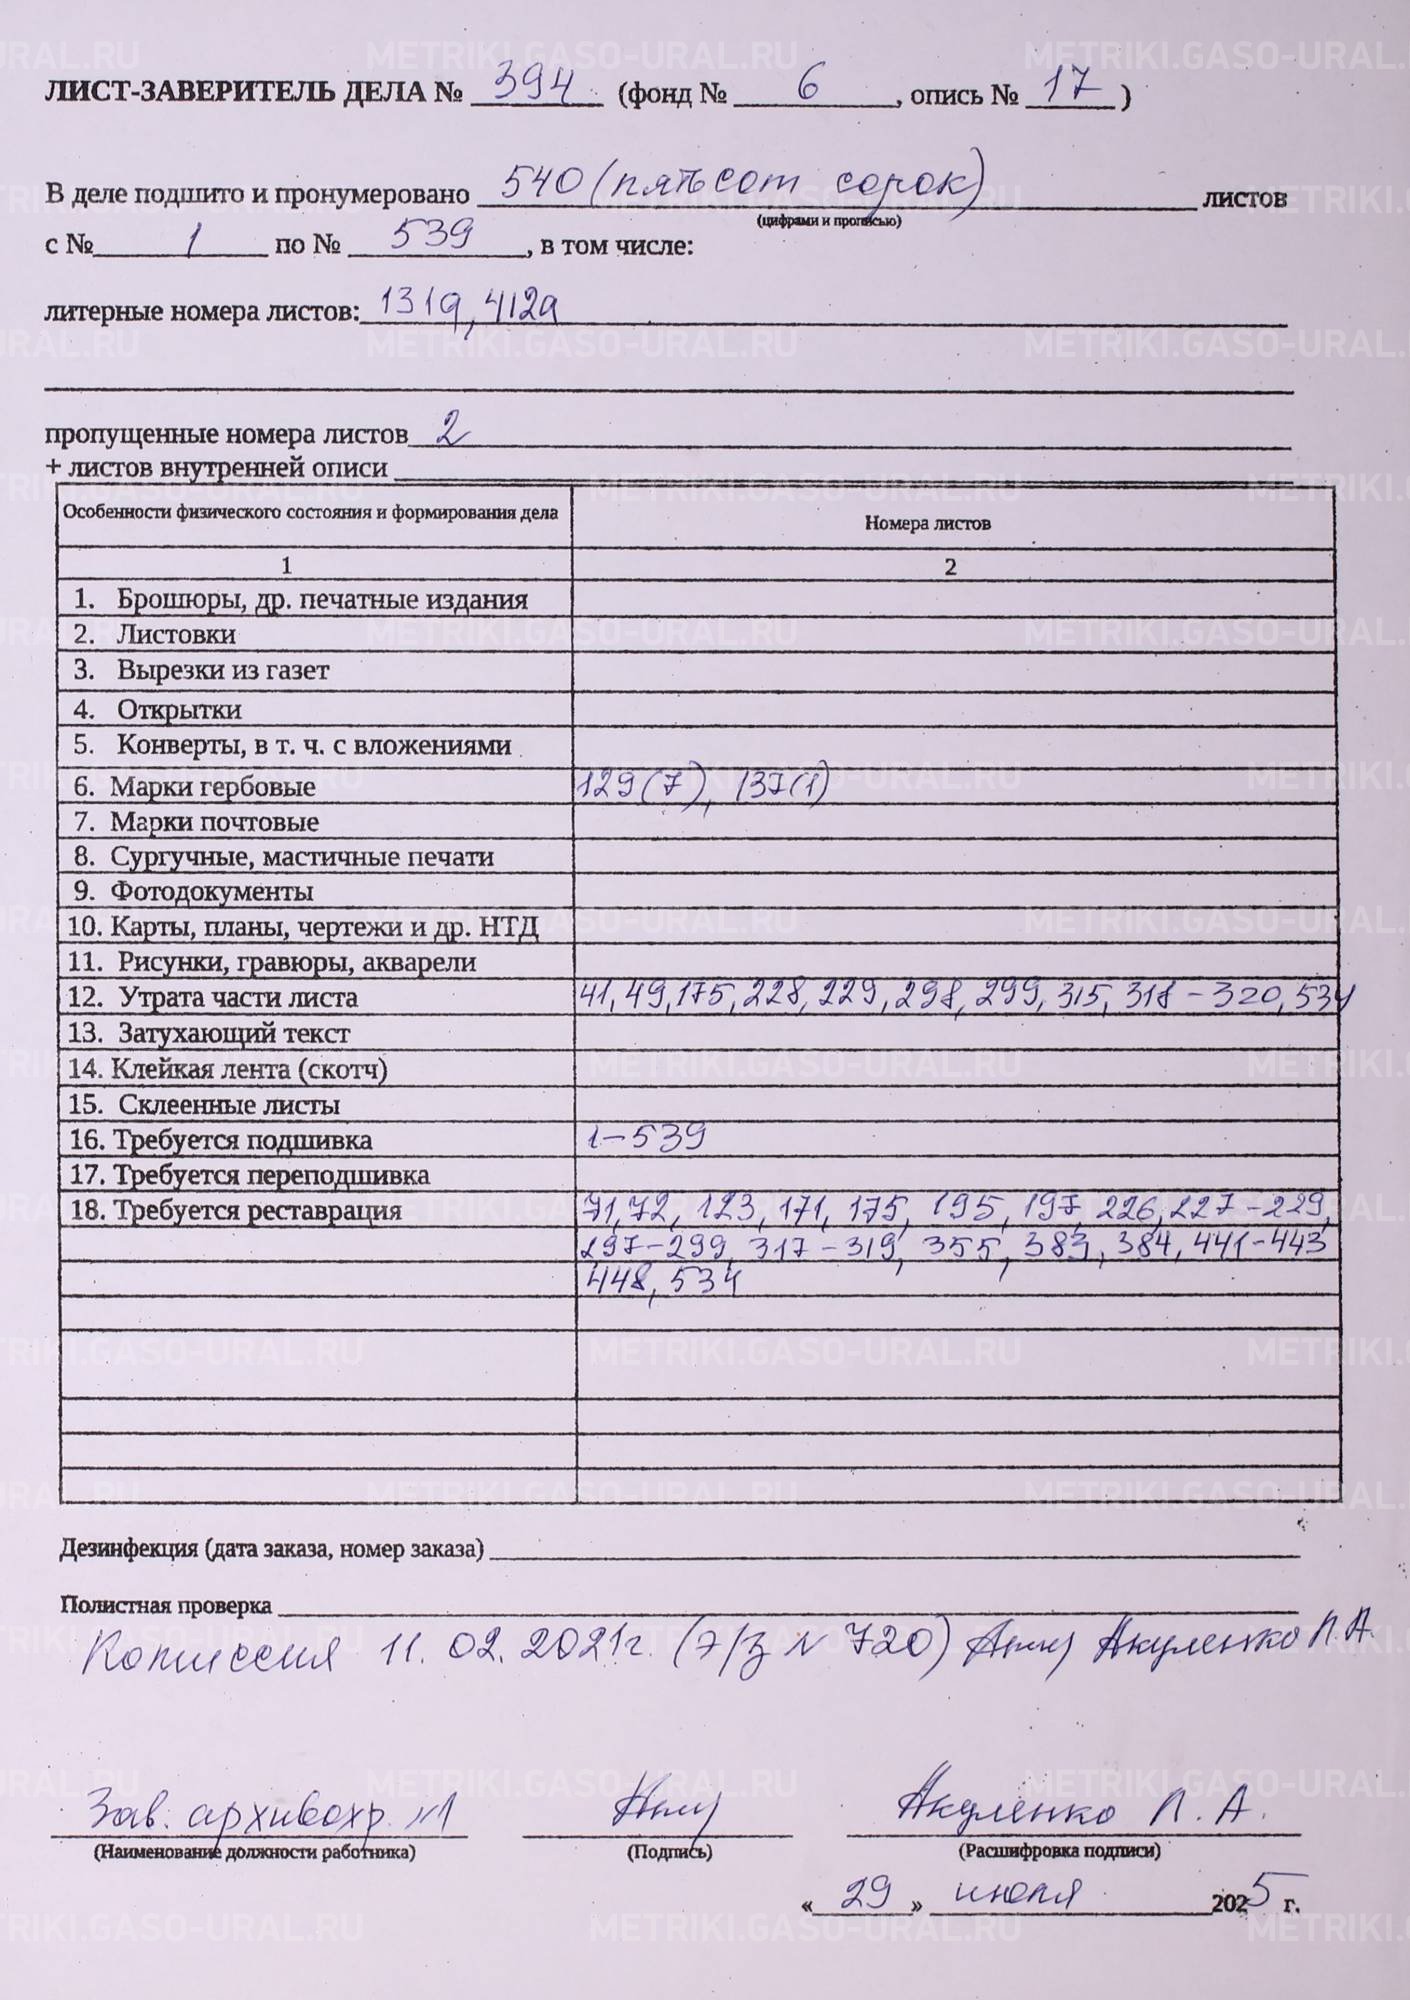 ЛИСТ-ЗАВЕРИТЕЛЬ ДЕЛА № 394 (фонд № 6, опись № 17)
В деле подшито и пронумеровано 540 (пятьсот сорок) листов
(цифрами и прописью)
с № 1 по № 539, в том числе:
литерные номера листов: 131а, 412а
пропущенные номера листов 2
+ листов внутренней описи
Особенности физического состояния и формирования дела Номера листов
1 2
1. Брошюры, др. печатные издания
2. Листовки
3. Вырезки из газет
4. Открытки
5. Конверты, в т. ч. с вложениями
6. Марки гербовые 129(7), 137(1)
7. Марки почтовые
8. Сургучные, мастичные печати
9. Фотодокументы
10. Карты, планы, чертежи и др. НТД
11. Рисунки, гравюры, акварели
12. Утрата части листа 41, 49, 175, 228, 229, 298, 299, 315, 318-320, 534
13. Затухающий текст
14. Клейкая лента (скотч)
15. Склеенные листы
16. Требуется подшивка 1-539
17. Требуется переподшивка
18. Требуется реставрация 71, 72, 123, 171, 175, 195, 197, 226, 227-229,
297-299, 317-319, 355, 383, 384, 441-443
448, 534
Дезинфекция (дата заказа, номер заказа)
Полистная проверка
Комиссия 11.02.2021г. (т/з № 720) Акуленко Л.А.
Зав. архивохр. №1 Акуленко Л.А.
(Наименование должности работника) (Подпись) (Расшифровка подписи)
«29» июля 2025 г.
METRIKI.GASO-URAL.RU